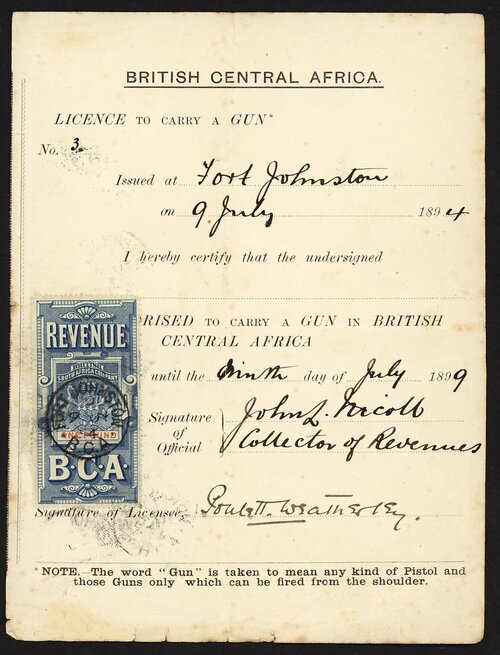 BRITISH CENTRAL AFRICA.
LICENCE TO CARRY A GUN*
No. 3.
Issued at Fort Johnston
on 9 July 1894
I hereby certify that the undersigned
ORISED TO CARRY A GUN IN BRITISH
CENTRAL AFRICA
until the Ninth day of July 1899
Signature of Official
John L. Nicoll
Collector of Revenues
Signature of Licensee, Poulett. Weatherley.
NOTE.—The word "Gun" is taken to mean any kind of Pistol and
those Guns only which can be fired from the shoulder.
REVENUE
SOUTH AFRICA COMPANY
ONE POUND
B.C.A.
FORT JOHNSTON
B.C.A.